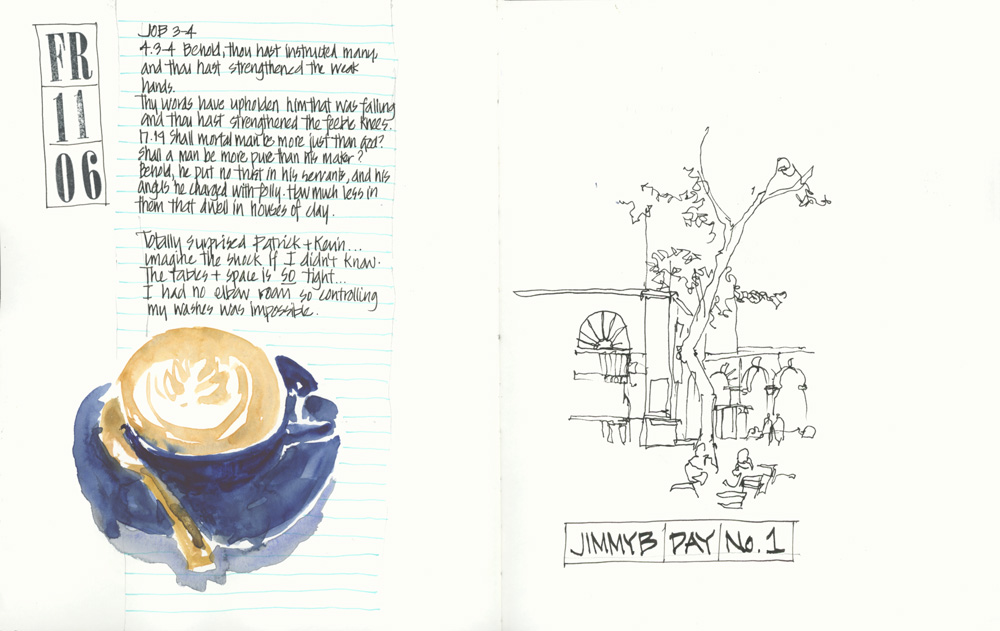 FR
11
06
JOB 3-4
4.3-4 Behold, thou hast instructed many,
and thou hast strengthened the weak
hands.
Thy words have upholden him that was falling
and thou hast strengthened the feeble knees.
17.19 Shall mortal man be more just than God?
Shall a man be more pure than his maker?
Behold, he put no trust in his servants, and his
angels he charged with folly. How much less in
them that dwell in houses of clay.
Totally surprised Patrick + Kevin...
imagine the shock if I didn't know.
The tables + space is SO tight...
I had no elbow room so controlling
my washes was impossible.
JIMMYB DAY No. 1